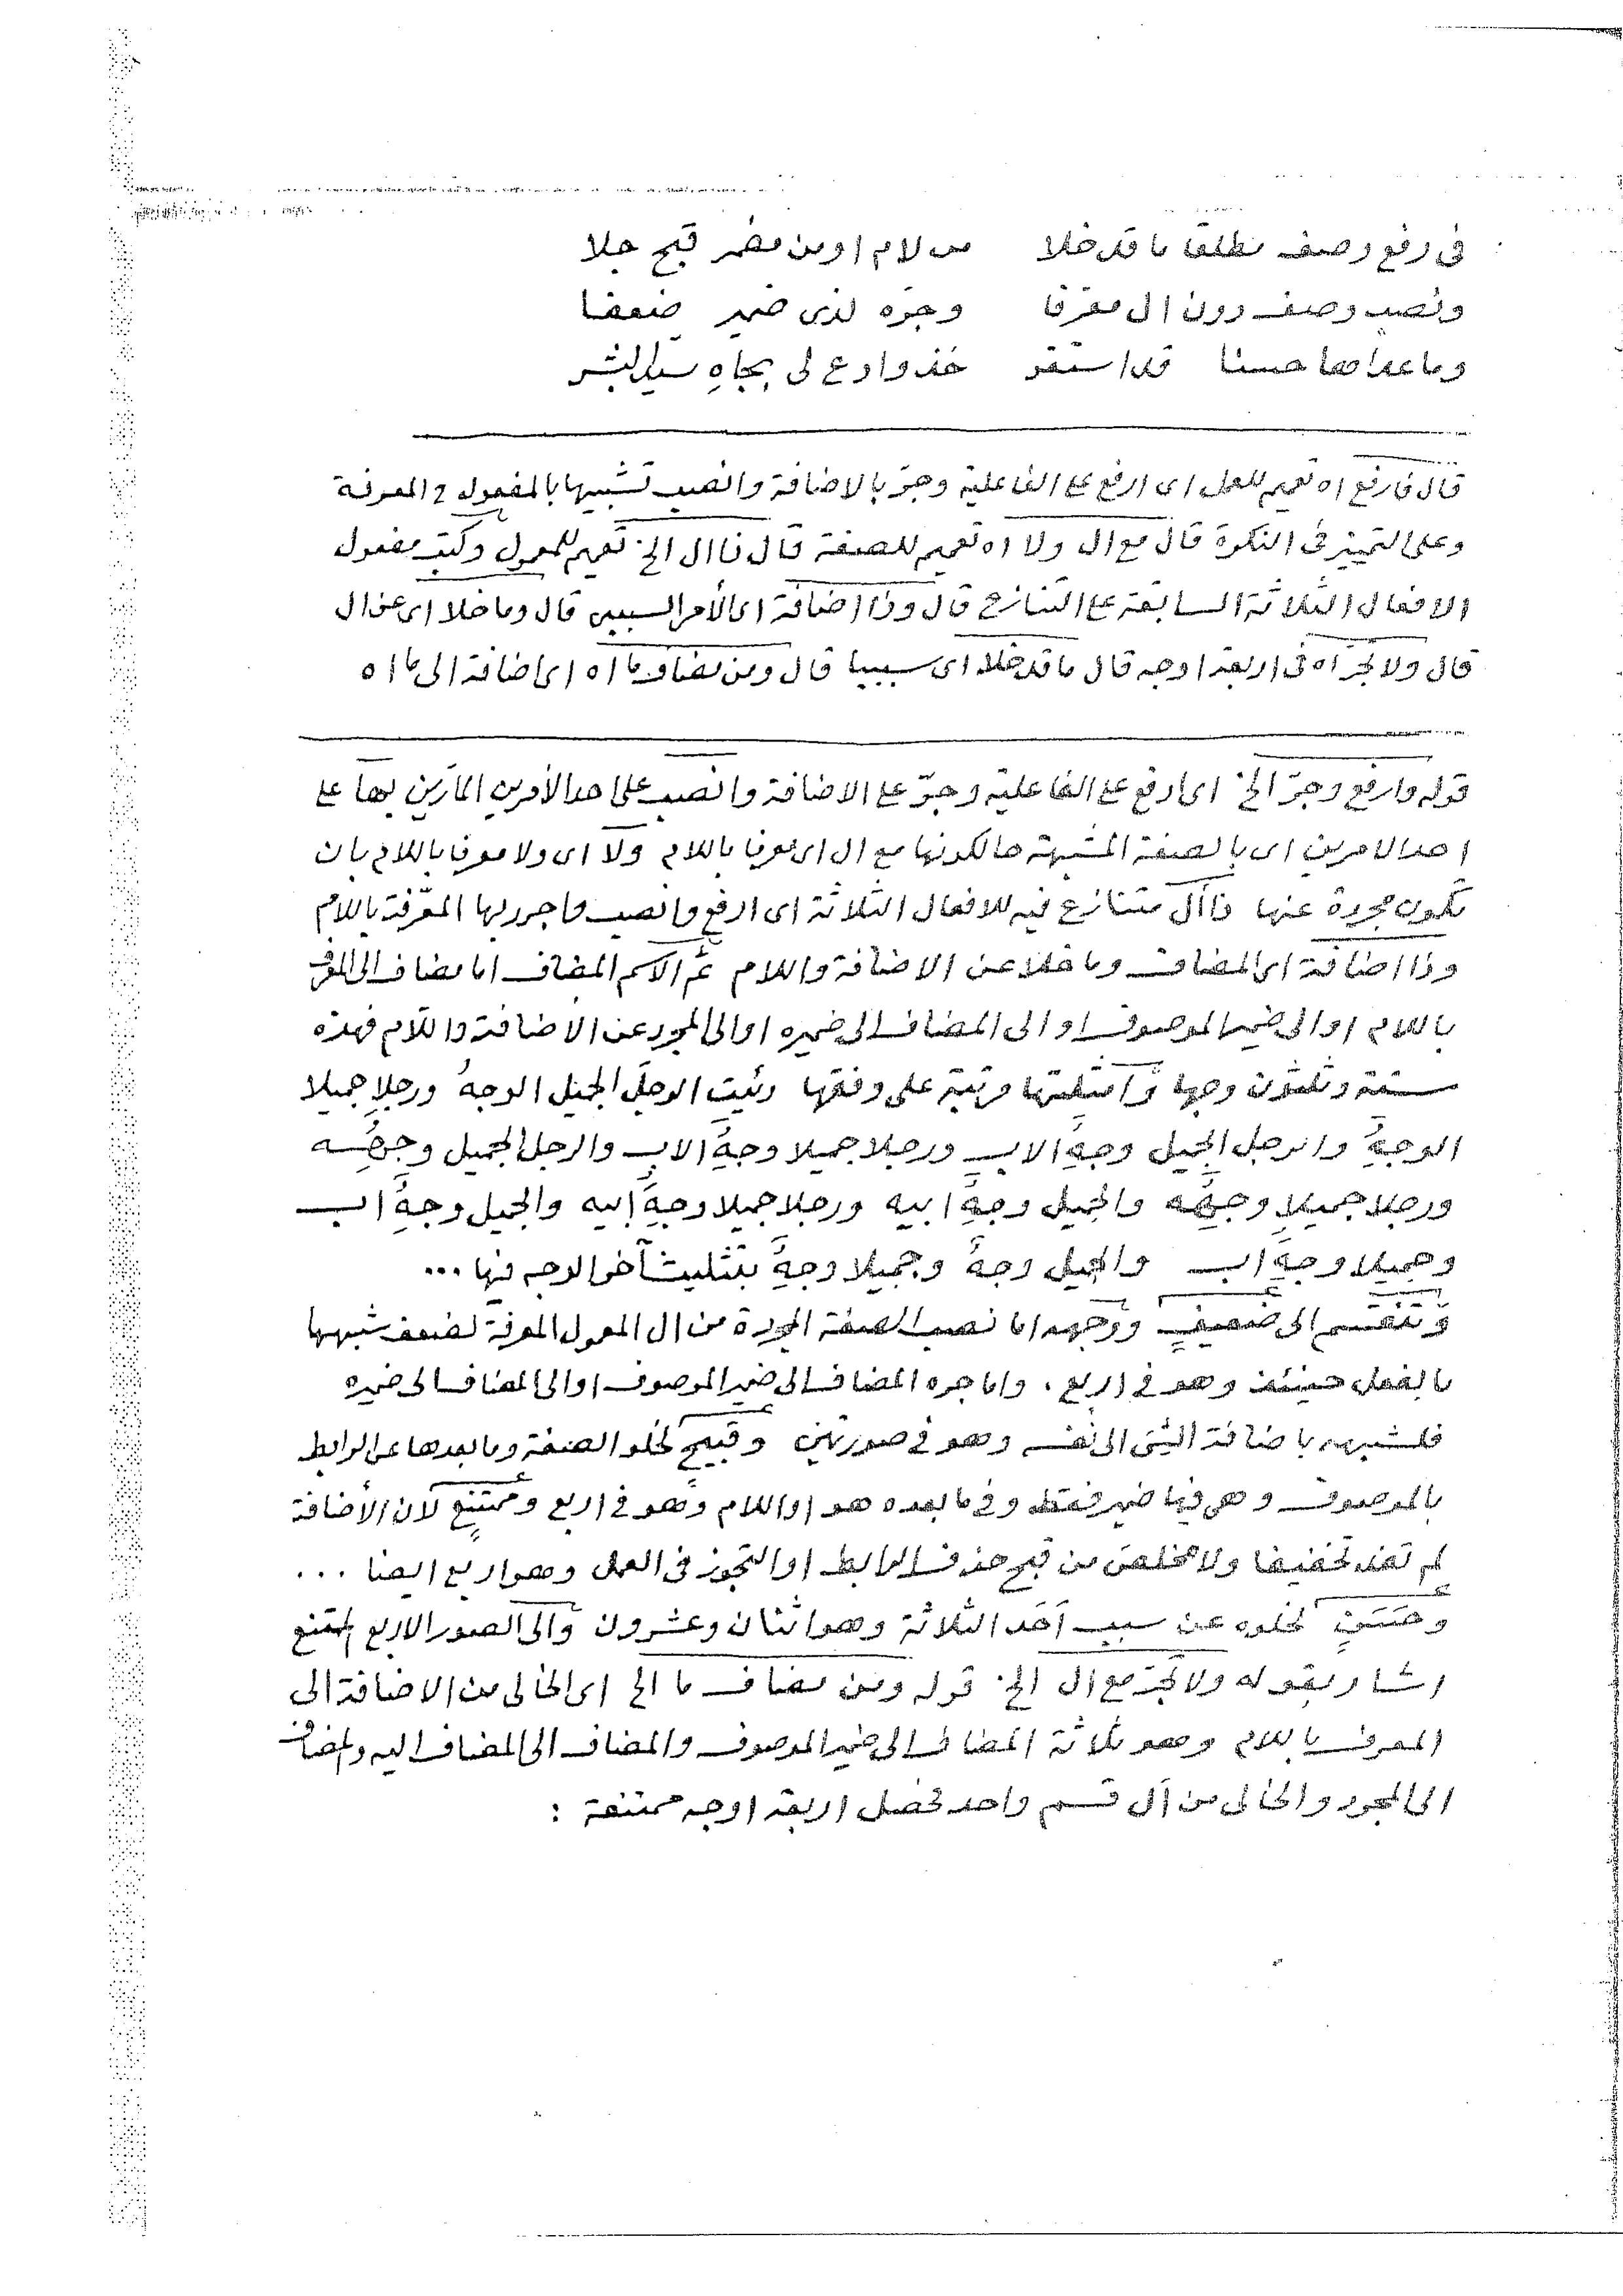 فى رفع وصف مطلقا ما قد خلا من لام او من مضمر قبح جلا
ونصب وصف دون ال معرفا وجره لذى ضمير ضعفا
وما عداهما حسنا قد استقر خذ وادع لى بجاهِ سيد البشر
قال فارفع اه تعميم للعمل اى ارفع على الفاعلية وجر بالاضافة وانصب تشبيها بالمفعول فى المعرفة
وعلى التمييز فى النكرة قال مع ال ولا اه تعميم للصفة قال فا ال الخ تعميم للمعمول وكتب مفعول
الافعال الثلاثة السابقة على التنازع قال وذا اضافة اى الأمر السببى قال وما خلا اى عن ال
قال ولا تجرر اه فى اربعة اوجه قال ما قد خلا اى سببيا قال ومن مضاف ما اه اى اضافة الى ما اه
قوله وارفع وجرّ الخ اى ارفع على الفاعلية وجرّ على الاضافة وانصب على احد الأمرين المارّين بها على
احد الامرين اى بالصفة المشبهة حالكونها مع ال اى معرفا باللام ولا اى ولا معرفا باللام بان
تكون مجردة عنها فا أل متنازع فيه للافعال الثلاثة اى ارفع وانصب واجرر بها المعرّفة باللام
وذا اضافة اى المضاف وما خلا عن الاضافة واللام ثم الاسم المضاف اما مضاف الى المعرف
باللام او الى ضمير الموصوف او الى المضاف الى ضميره او الى المجرد عن الاضافة واللام فهذه
ستة وثلثون وجها وامثلتها مرتبة على وفقها رئيت الرجل الجميل الوجه ورجلا جميلا
الوجه والرجل الجميل وجه الاب ورجلا جميلا وجه الاب والرجل الجميل وجهه
ورجلا جميلا وجهه والجميل وجه ابيه ورجلا جميلا وجه ابيه والجميل وجه اب
وجميلا وجه اب والجميل وجه وجميلا وجه بتثليث آخر الوجه فيها ...
وتنقسم الى ضعيفٍ ووجهه اما نصب الصفة المجردة من ال المعمول المعرفة لضعف شبهها
بالفعل حينئذ وهو فى اربع ، واما جره المضاف الى ضمير الموصوف او الى المضاف الى ضميره
فلشبهه باضافة الشئ الى نفسه وهو فى صورتين وقبيحٍ لخلو الصفة وما بعدها عن الرابط
بالموصوف وهى فيها ضمير فقط وفى ما بعده هو او اللام وهو فى اربع وممتنعٍ لان الأضافة
لم تفد تخفيفا ولا تخلص من قبح حذف الرابط او التجوز فى العمل وهو اربع ايضا ...
وحَسَنٍ لخلوه عن سبب احَد الثلاثة وهو اثنان وعشرون والى الصور الاربع الممتنع
اشار بقوله ولا تجرر مع ال الخ قوله ومن مضاف ما الخ اى الخالى من الاضافة الى
المعرف باللام وهو ثلاثة المضاف الى ضمير الموصوف والمضاف الى المضاف اليه والمضاف
الى المجرد والخالى من أل قسم واحد تحصل اربعة اوجه ممتنعة :